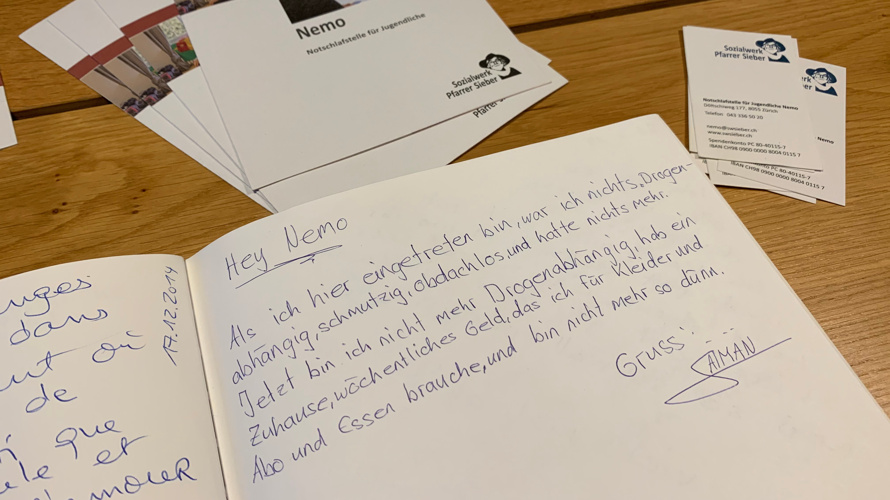 Nemo
Notschlafstelle für Jugendliche
Sozialwerk
Pfarrer Sieber
Pfarrer Sieber
Sozialwerk
Pfarrer Sieber
Notschlafstelle für Jugendliche Nemo
8055 Zürich
Telefon 043 336 50 20
nemo@swsieber.ch
www.swsieber.ch
Spendenkonto PC 80-40115-7
IBAN CH98 0900 0000 8004 0115 7
Sieber
Nemo
80-40115-7
0900 0000 8004 0115 7
17.12.2014
dans
où
de
que
et
Hey Nemo
Als ich hier eingetreten bin, war ich nichts, Drogen-
abhängig, schmutzig, obdachlos, und hatte nichts mehr.
Jetzt bin ich nicht mehr Drogenabhängig, hab ein
Zuhause, wöchentliches Geld, das ich für Kleider und
Abo und Essen brauche, und bin nicht mehr so dünn.
Gruss: